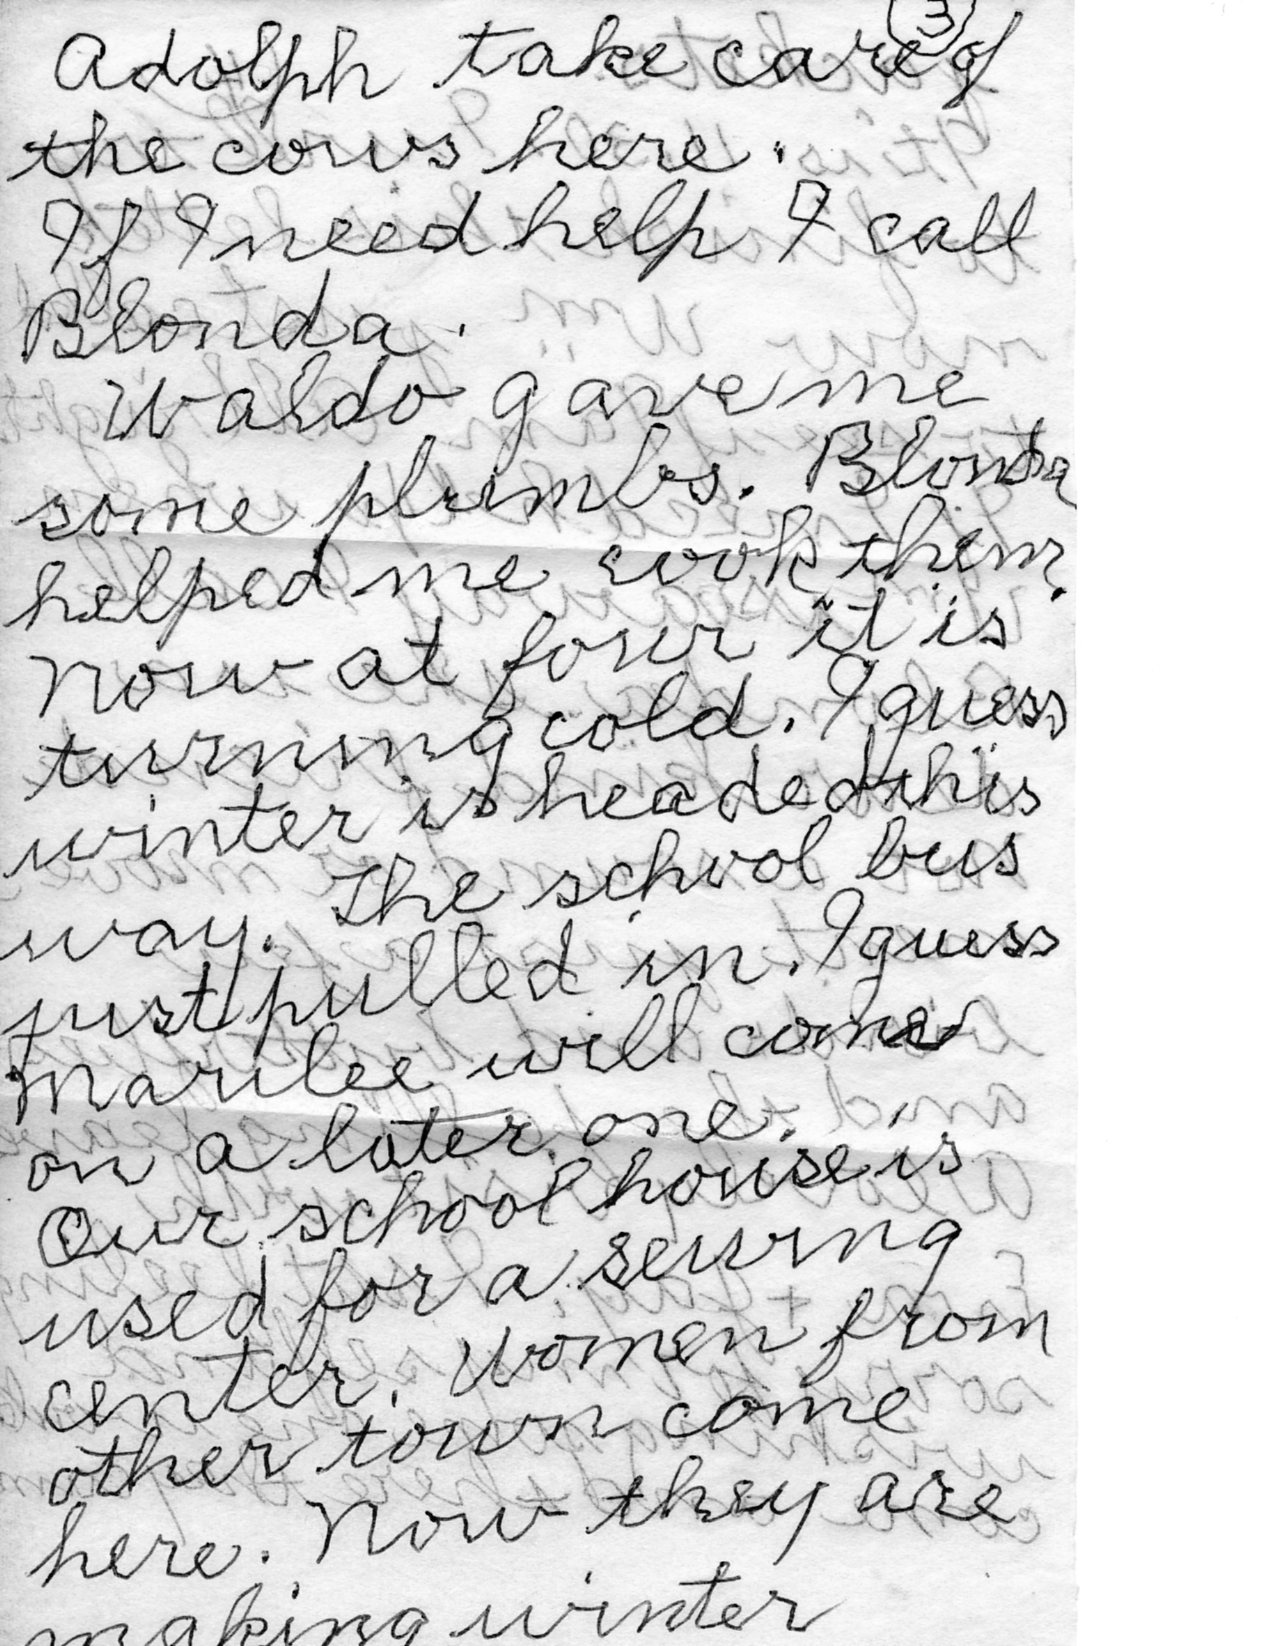 3
Adolph take care of
the cows here.
If I need help I call
Blonda.
Waldo gave me
some plumbs. Blonda
helped me cook them.
Now at four it is
turning cold. I guess
winter is headed this
way. The school bus
just pulled in. I guess
Marilee will come
on a later one.
Our school house is
used for a sewing
center. Women from
other town come
here. Now they are
making winter